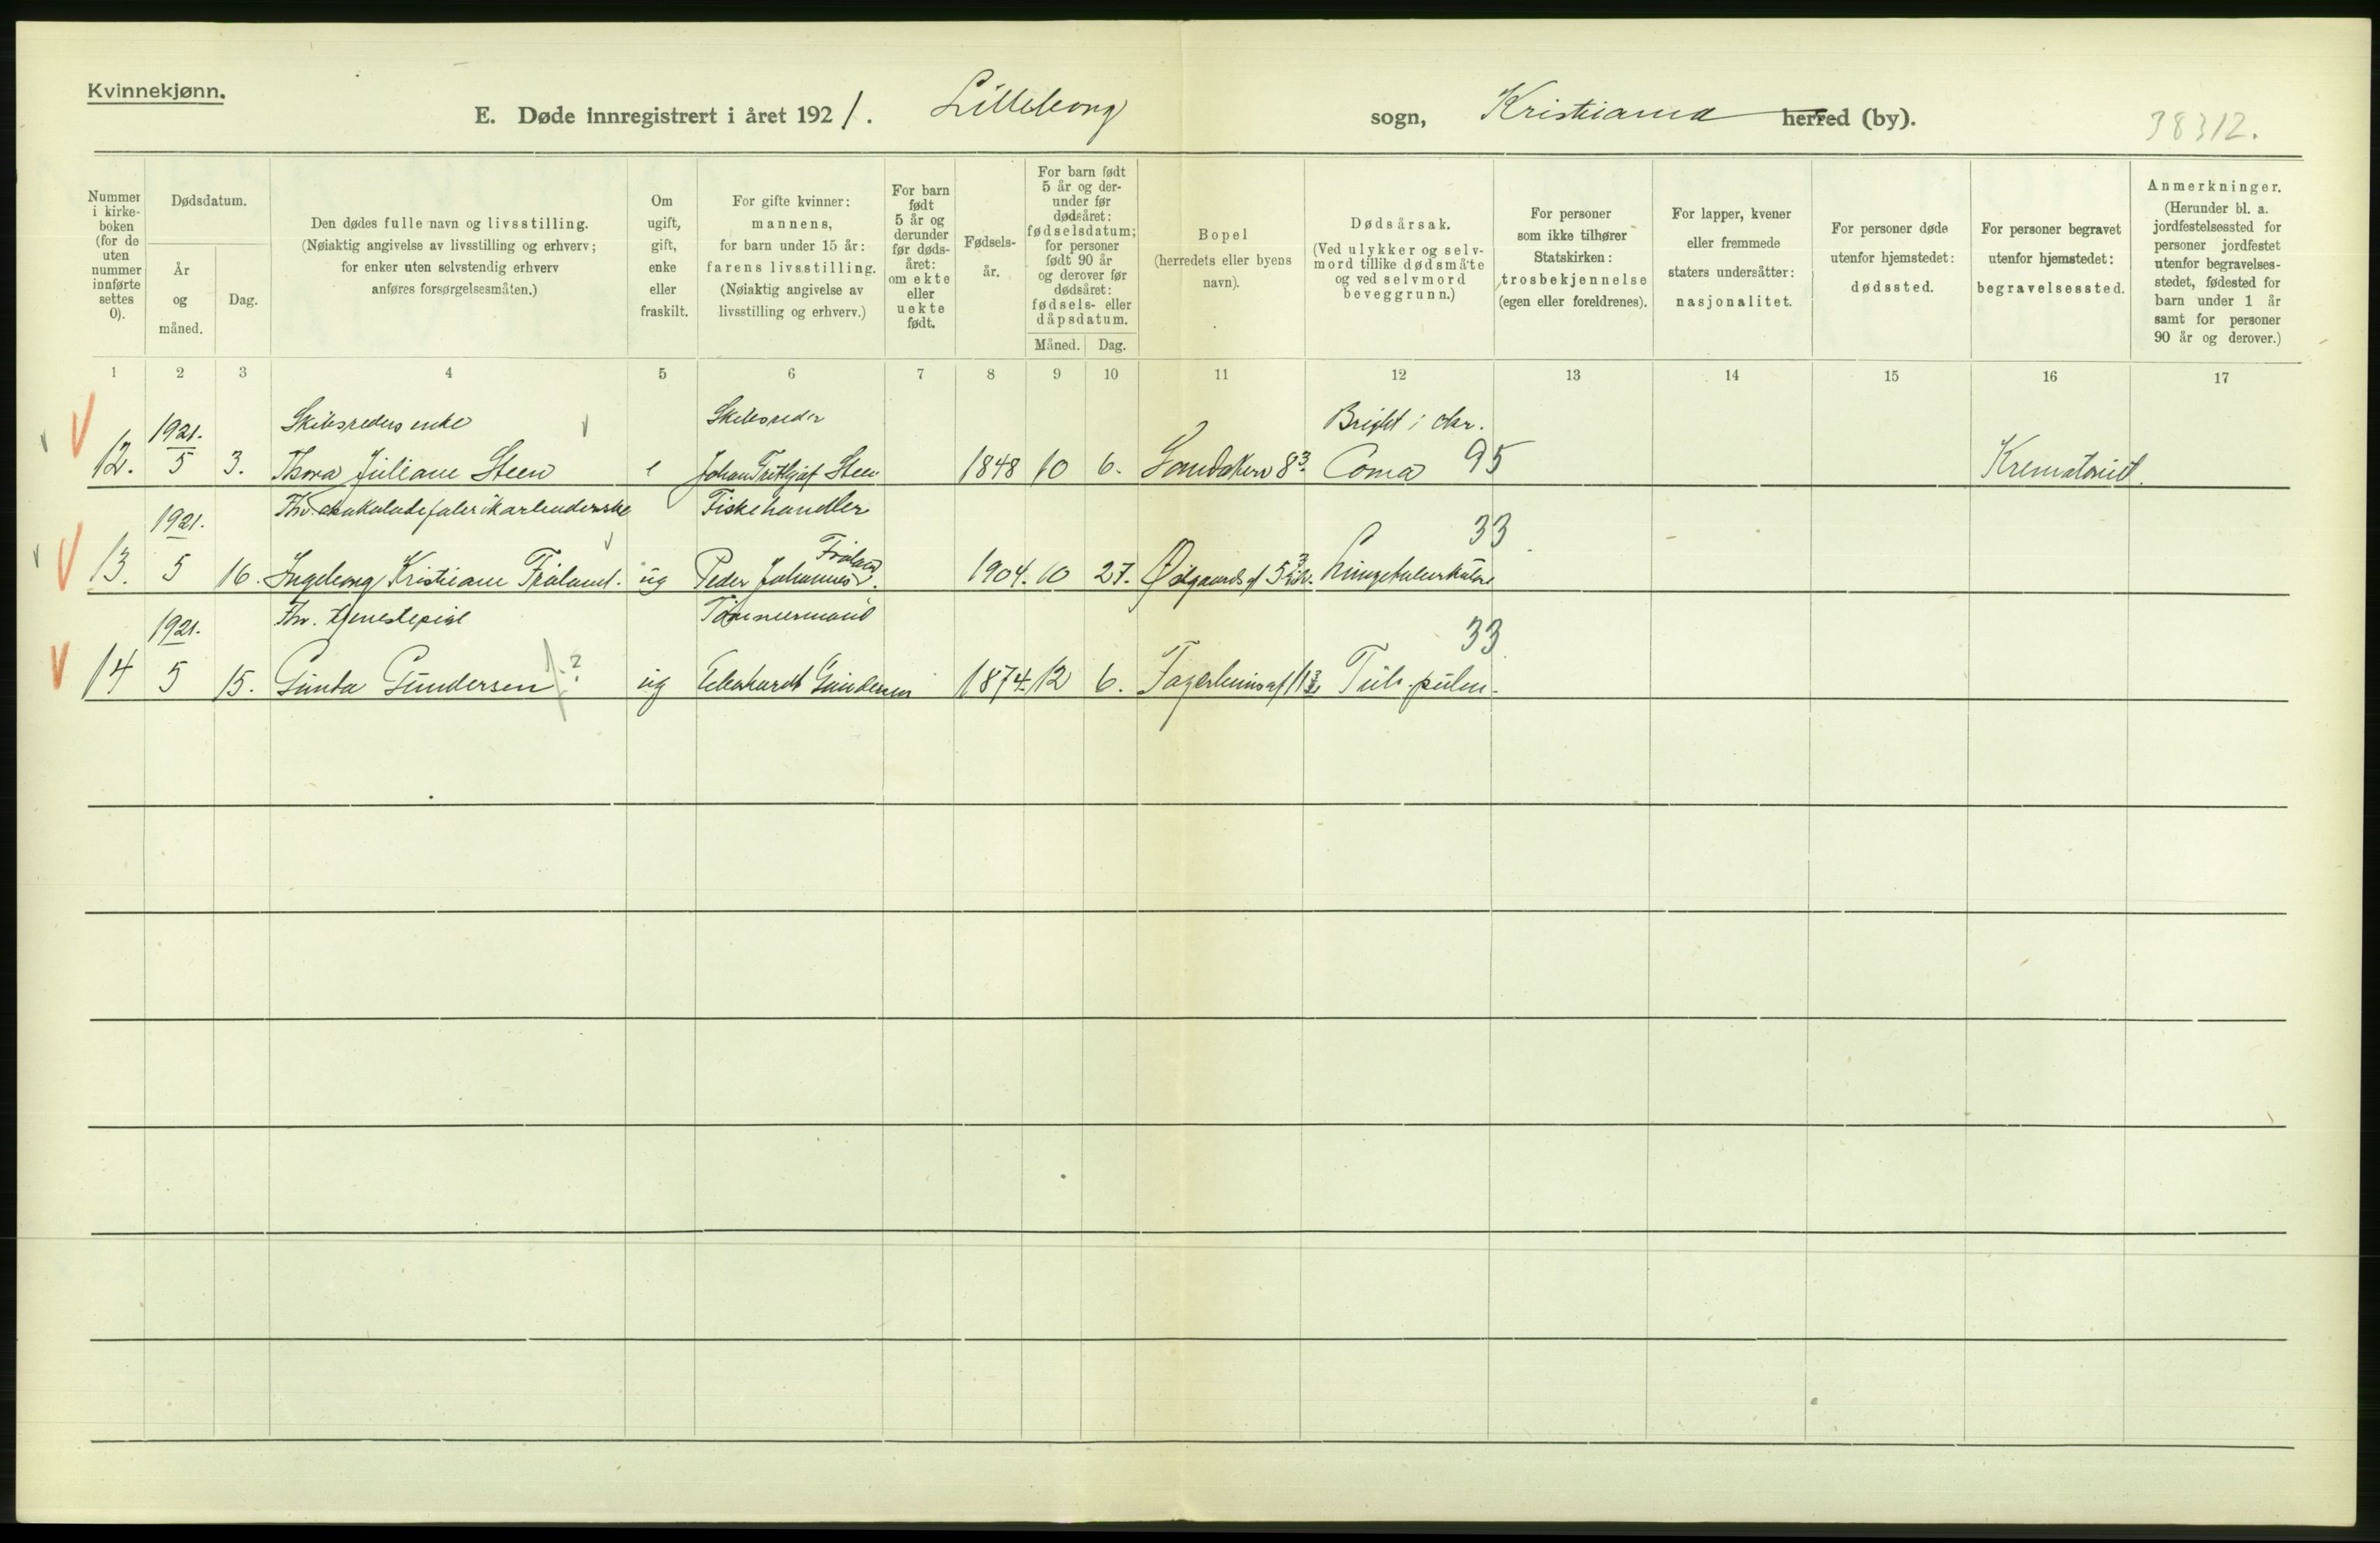 Kvinnekjønn.
E. Døde innregistrert i året 1921. Lilleborg sogn, Kristiania herred (by). 38312.
Nummer i kirke-boken (for de uten nummer innførte settes 0).
Dødsdatum.
År og måned.
Dag.
Den dødes fulle navn og livsstilling.
(Nøiaktig angivelse av livsstilling og erhverv;
for enker uten selvstendig erhverv
anføres forsørgelsesmåten.)
Om ugift, gift, enke eller fraskilt.
For gifte kvinner:
mannens,
for barn under 15 år:
farens livsstilling.
(Nøiaktig angivelse av
livsstilling og erhverv.)
For barn født 5 år og derunder før døds-året: om ekte eller uekte født.
Fødsels-år.
For barn født 5 år og der-under før dødsåret: fødselsdatum; for personer født 90 år og derover før dødsåret: fødsels- eller dåpsdatum.
Måned. Dag.
Bopel
(herredets eller byens
navn).
Dødsårsak.
(Ved ulykker og selv-
mord tillike dødsmåte
og ved selvmord
beveggrunn.)
For personer
som ikke tilhører
Statskirken:
trosbekjennelse
(egen eller foreldrenes).
For lapper, kvener
eller fremmede
staters undersåtter:
nasjonalitet.
For personer døde
utenfor hjemstedet:
dødssted.
For personer begravet
utenfor hjemstedet:
begravelsessted.
Anmerkninger.
(Herunder bl. a.
jordfestelsessted for
personer jordfestet
utenfor begravelses-
stedet, fødested for
barn under 1 år
samt for personer
90 år og derover.)
1 2 3 4 5 6 7 8 9 10 11 12 13 14 15 16 17
1921. Skibsreders enke Skibsreder Bright i chr.
12. 5 3. Thora Juliane Steen e Johan Frithjof Steen 1848 10 6. Sandakerv 8 3. Coma 95 Krematoriet.
1921. Fhv. chokoladefabrikarbeiderske Fiskehandler 33
13. 5 16. Ingeborg Kristiane Frøland. ug Peder Johannes Frøland. 1904. 10 27. Ødgaards gt 5 Lungetuberkulose
1921. Fhv. tjenestepige Tømmermand 33
14 5 15. Gunda Gundersen f.? ug Gundersen 1874. 12 6. Fagerheimsgt 11 Tub. pulm.